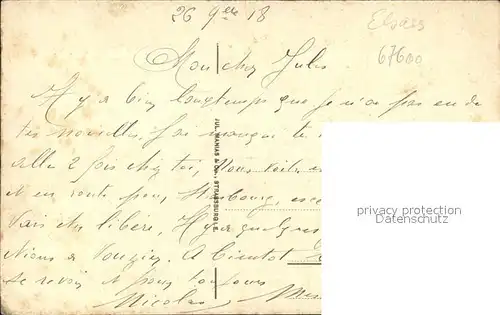 26 9bre 18
Elsass
67600
Mon cher Jules
Il y a bien longtemps que je n'ai pas eu de
tes nouvelles. J'ai manqué te
allé 2 fois chez toi, Nous voilà en
et en route pour Strasbourg,
vais être libéré, Il y a quelques
A bientôt
se revoir et pour toujours
Nicolas
JUL. MANIAS & Cie., STRASSBURG I. E.
privacy protection
Datenschutz